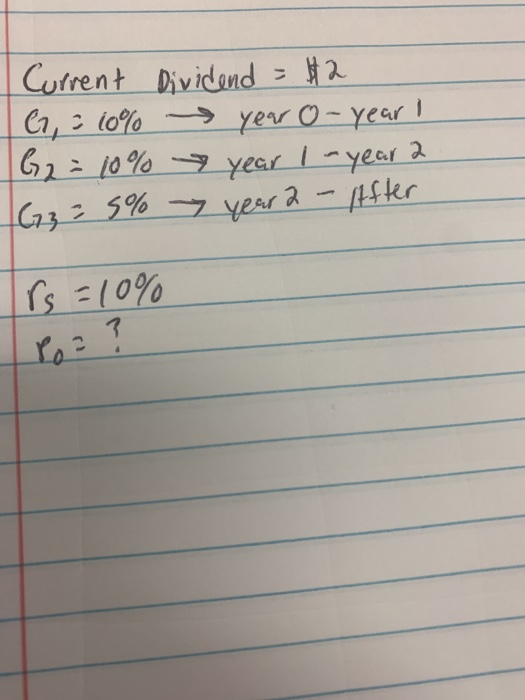 Current Dividend = $2
G1 = 10% → year 0 - year 1
G2 = 10% → year 1 - year 2
G3 = 5% → year 2 - After
rs = 10%
P0 = ?